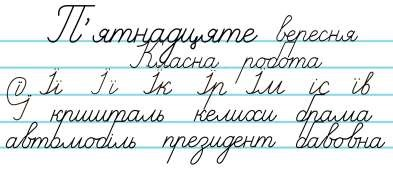 П'ятнадцяте вересня
Класна робота
ї Її Її Їк Їр Їм їс їв
кришталь келихи драма
автомобіль президент бавовна